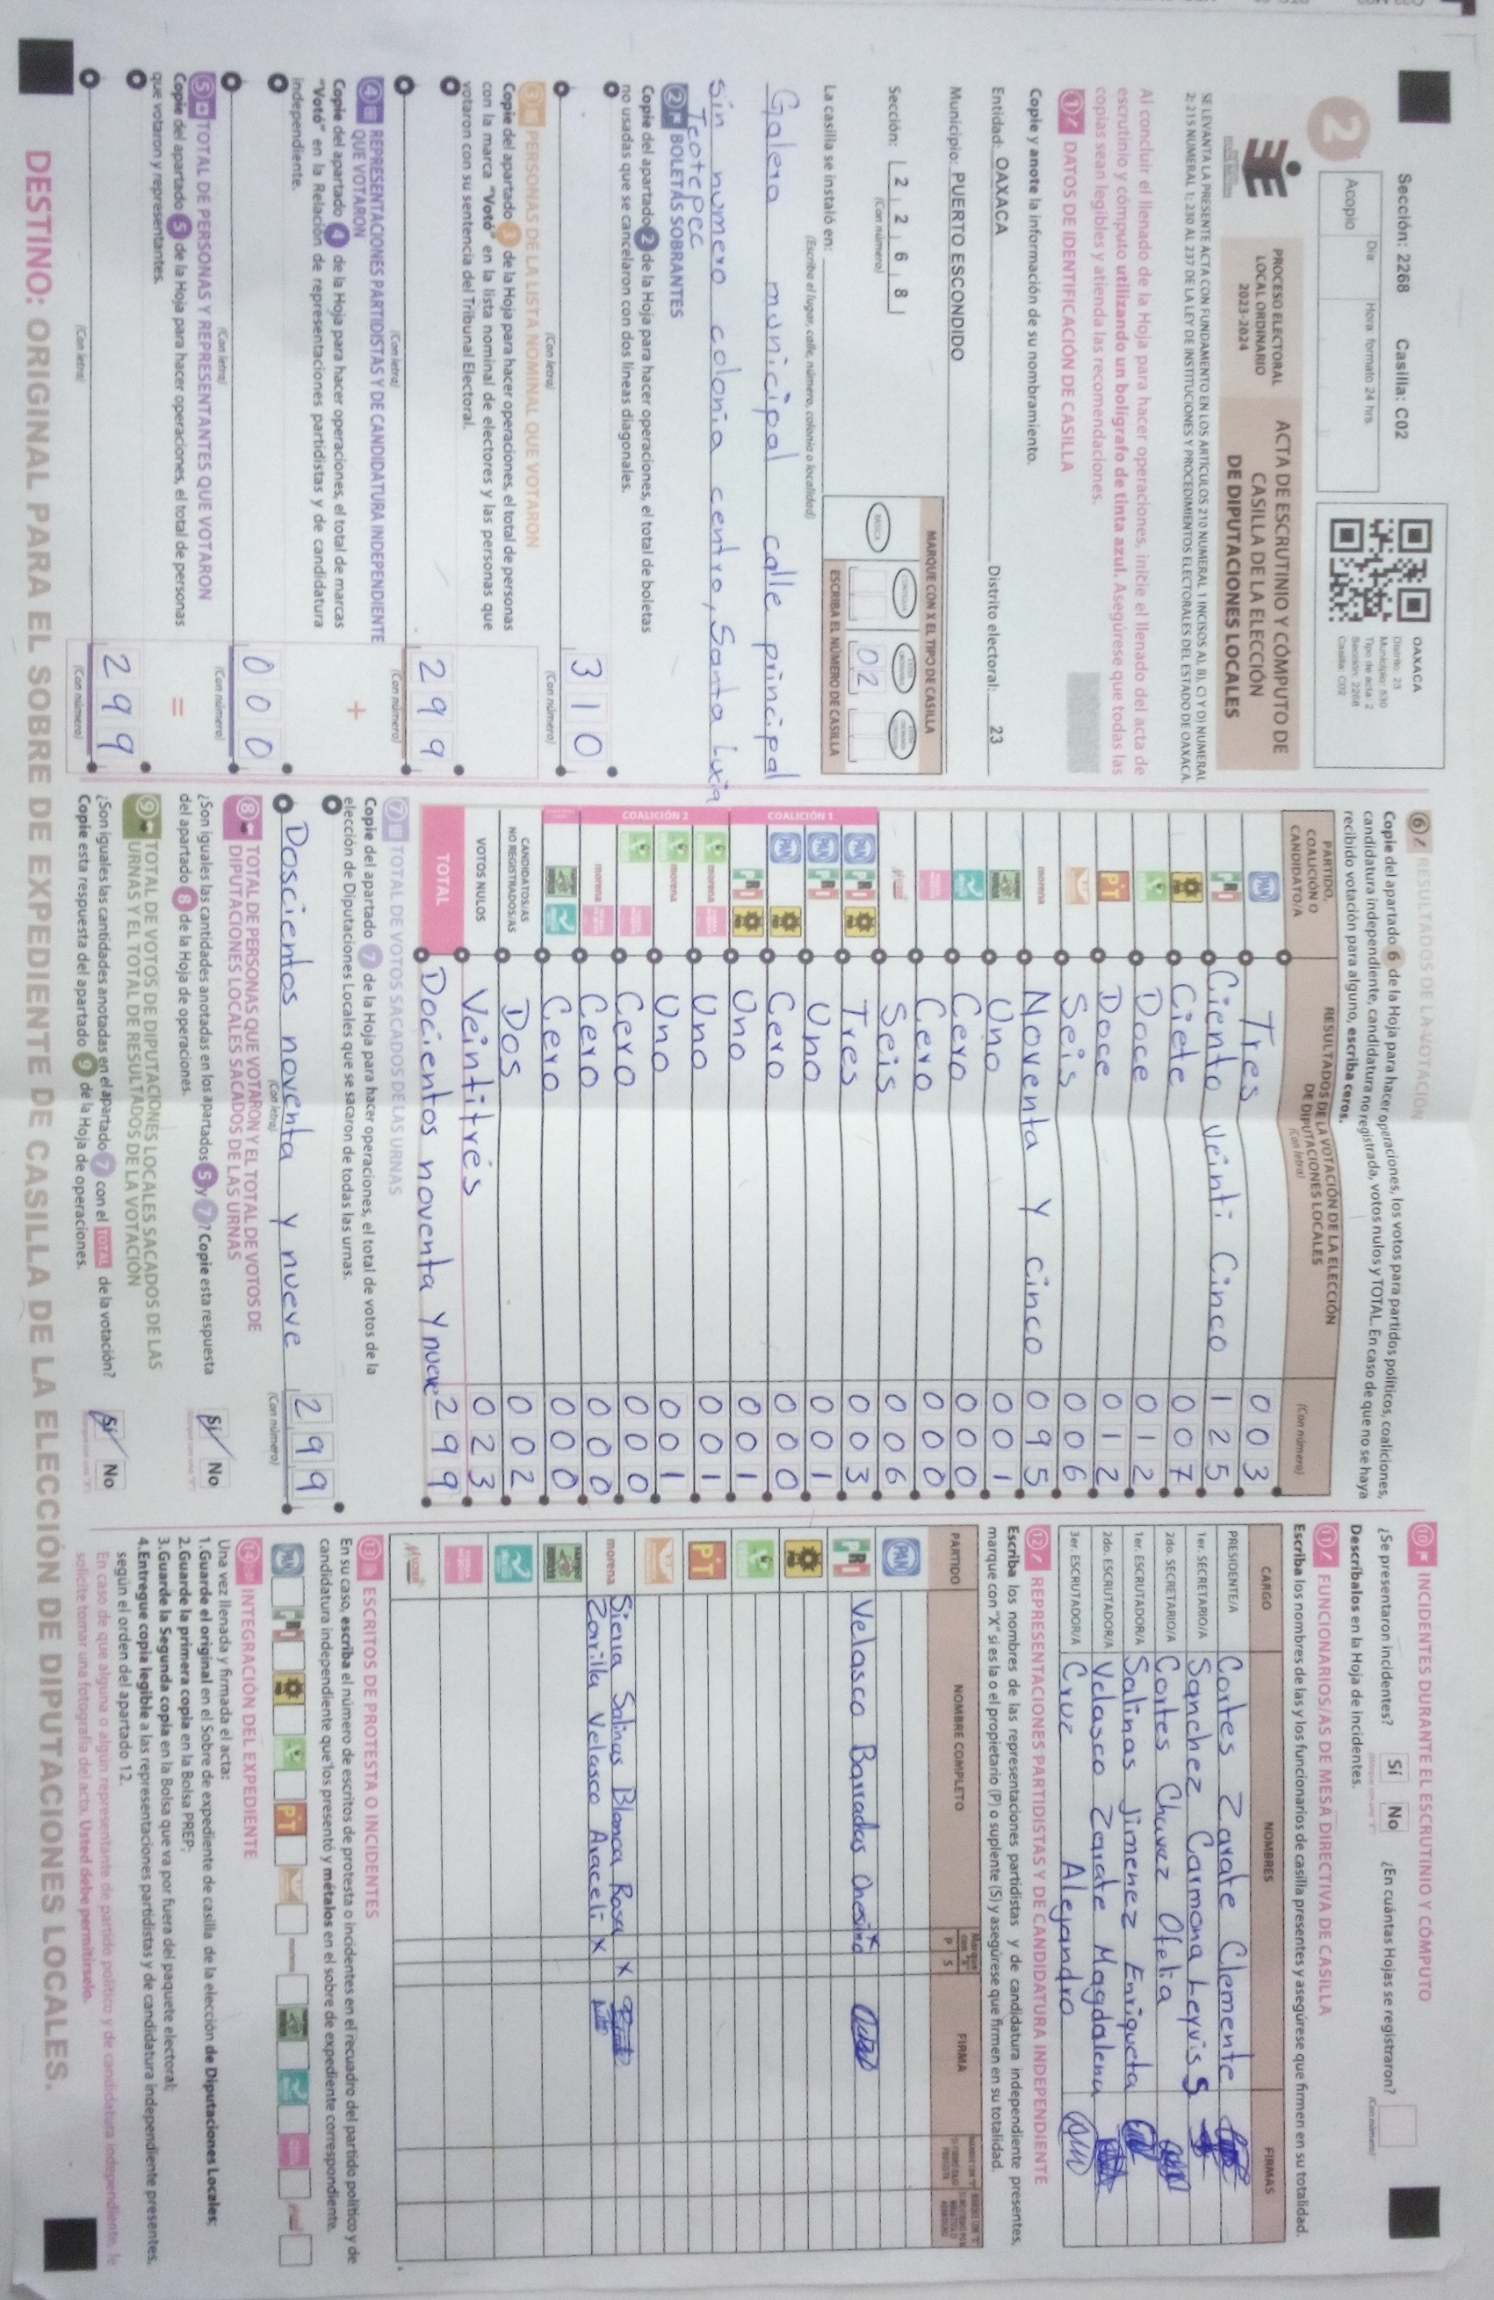 Sección: 2268 Casilla: C02
2
Día: Hora: formato 24 hrs.
Acopio
OAXACA
Distrito: 23
Municipio: 530
Tipo de acta: 2
Sección: 2268
Casilla: C02
PROCESO ELECTORAL
LOCAL ORDINARIO
2023-2024
ACTA DE ESCRUTINIO Y CÓMPUTO DE
CASILLA DE LA ELECCIÓN
DE DIPUTACIONES LOCALES
SE LEVANTA LA PRESENTE ACTA CON FUNDAMENTO EN LOS ARTÍCULOS 210 NUMERAL 1 INCISOS A), B), C) Y D) NUMERAL
2; 215 NUMERAL 1; 230 AL 237 DE LA LEY DE INSTITUCIONES Y PROCEDIMIENTOS ELECTORALES DEL ESTADO DE OAXACA.
Al concluir el llenado de la Hoja para hacer operaciones, inicie el llenado del acta de
escrutinio y cómputo utilizando un bolígrafo de tinta azul. Asegúrese que todas las
copias sean legibles y atienda las recomendaciones.
1 DATOS DE IDENTIFICACIÓN DE CASILLA
Copie y anote la información de su nombramiento.
Entidad: OAXACA Distrito electoral: 23
Municipio: PUERTO ESCONDIDO
Sección: 2 2 6 8
(Con número)
MARQUE CON X EL TIPO DE CASILLA
BÁSICA
02
ESCRIBA EL NÚMERO DE CASILLA
La casilla se instaló en:
(Escriba el lugar, calle, número, colonia o localidad)
Galera municipal calle principal
sin numero colonia centro, Santa Lucia
Teotepec
2 BOLETAS SOBRANTES
Copie del apartado 2 de la Hoja para hacer operaciones, el total de boletas
no usadas que se cancelaron con dos líneas diagonales.
310
(Con letra) (Con número)
3 PERSONAS DE LA LISTA NOMINAL QUE VOTARON
Copie del apartado 3 de la Hoja para hacer operaciones, el total de personas
con la marca "Votó" en la lista nominal de electores y las personas que
votaron con su sentencia del Tribunal Electoral.
299
(Con letra) (Con número)
4 REPRESENTACIONES PARTIDISTAS Y DE CANDIDATURA INDEPENDIENTE
QUE VOTARON
+
Copie del apartado 4 de la Hoja para hacer operaciones, el total de marcas
"Votó" en la Relación de representaciones partidistas y de candidatura
independiente.
000
(Con letra) (Con número)
5 TOTAL DE PERSONAS Y REPRESENTANTES QUE VOTARON
=
Copie del apartado 5 de la Hoja para hacer operaciones, el total de personas
que votaron y representantes.
299
(Con letra) (Con número)
6 RESULTADOS DE LA VOTACIÓN
Copie del apartado 6 de la Hoja para hacer operaciones, los votos para partidos políticos, coaliciones,
candidatura independiente, candidatura no registrada, votos nulos y TOTAL. En caso de que no se haya
recibido votación para alguno, escriba ceros.
PARTIDO, COALICIÓN O CANDIDATO/A
RESULTADOS DE LA VOTACIÓN DE LA ELECCIÓN DE DIPUTACIONES LOCALES
(Con letra) (Con número)
PAN Tres 003
PRI Ciento Veinti Cinco 125
PRD Ciete 007
Doce 012
PT Doce 012
Seis 006
morena Noventa Y cinco 095
Uno 001
Cero 000
Cero 000
Seis 006
COALICIÓN 1
PAN PRI PRD Tres 003
PAN PRI Uno 001
PAN PRD Cero 000
PRI PRD Uno 001
COALICIÓN 2
morena Uno 001
morena Uno 001
Cero 000
morena Cero 000
Cero 000
CANDIDATOS/AS NO REGISTRADOS/AS Dos 002
VOTOS NULOS Veintitrés 023
TOTAL Docientos noventa Y nueve 299
7 TOTAL DE VOTOS SACADOS DE LAS URNAS
Copie del apartado 7 de la Hoja para hacer operaciones, el total de votos de la
elección de Diputaciones Locales que se sacaron de todas las urnas.
Doscientos noventa y nueve 299
(Con letra) (Con número)
8 TOTAL DE PERSONAS QUE VOTARON Y EL TOTAL DE VOTOS DE
DIPUTACIONES LOCALES SACADOS DE LAS URNAS
¿Son iguales las cantidades anotadas en los apartados 5 y 7? Copie esta respuesta
del apartado 8 de la Hoja de operaciones.
Sí No
9 TOTAL DE VOTOS DE DIPUTACIONES LOCALES SACADOS DE LAS
URNAS Y EL TOTAL DE RESULTADOS DE LA VOTACIÓN
¿Son iguales las cantidades anotadas en el apartado 7 con el TOTAL de la votación?
Copie esta respuesta del apartado 9 de la Hoja de operaciones.
Sí No
10 INCIDENTES DURANTE EL ESCRUTINIO Y CÓMPUTO
¿Se presentaron incidentes? Sí No ¿En cuántas Hojas se registraron?
(Con número)
Descríbalos en la Hoja de incidentes.
11 FUNCIONARIOS/AS DE MESA DIRECTIVA DE CASILLA
Escriba los nombres de las y los funcionarios de casilla presentes y asegúrese que firmen en su totalidad.
CARGO NOMBRES FIRMAS
PRESIDENTE/A Cortes Zarate Clemente
1er. SECRETARIO/A Sanchez Carmona Leyviss
2do. SECRETARIO/A Cortes Chavez Ofelia
1er. ESCRUTADOR/A Salinas Jimenez Enriqueta
2do. ESCRUTADOR/A Velasco Zarate Magdalena
3er. ESCRUTADOR/A Cruz Alejandro
12 REPRESENTACIONES PARTIDISTAS Y DE CANDIDATURA INDEPENDIENTE
Escriba los nombres de las representaciones partidistas y de candidatura independiente presentes,
marque con "X" si es la o el propietario (P) o suplente (S) y asegúrese que firmen en su totalidad.
PARTIDO NOMBRE COMPLETO P S FIRMA
PAN
PRI Velasco Barradas Onesimo X
PRD
PT
morena Sierra Salinas Blanca Rosa X
Zorilla Velasco Araceli X
13 ESCRITOS DE PROTESTA O INCIDENTES
En su caso, escriba el número de escritos de protesta o incidentes en el recuadro del partido político y de
candidatura independiente que los presentó y métalos en el sobre de expediente correspondiente.
PAN PRI PRD PT morena
14 INTEGRACIÓN DEL EXPEDIENTE
Una vez llenada y firmada el acta:
1.Guarde el original en el Sobre de expediente de casilla de la elección de Diputaciones Locales;
2.Guarde la primera copia en la Bolsa PREP;
3.Guarde la Segunda copia en la Bolsa que va por fuera del paquete electoral;
4.Entregue copia legible a las representaciones partidistas y de candidatura independiente presentes,
según el orden del apartado 12.
En caso de que alguna o algún representante de partido político y de candidatura independiente, le
solicite tomar una fotografía del acta, Usted debe permitírselo.
DESTINO: ORIGINAL PARA EL SOBRE DE EXPEDIENTE DE CASILLA DE LA ELECCIÓN DE DIPUTACIONES LOCALES.